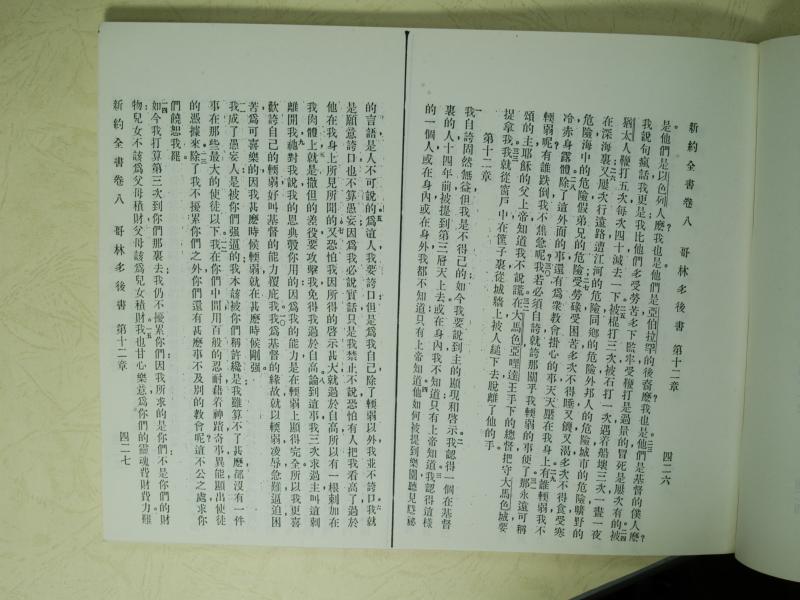 新約全書卷八　哥林多後書　第十二章　四二六
是他們是以色列人麽我也是他們是亞伯拉罕的後裔麽我也是他們是基督的僕人麽
我說句瘋話我更是我比他們多受勞苦多下監牢受鞭打是過量的冒死是屢次有的被
猶太人鞭打五次每次四十減去一下被棍打三次被石打一次遇着船壞三次一晝一夜
在深海裏又屢次行遠路遭江河的危險同鄉的危險外邦人的危險城市的危險曠野的
危險海中的危險假弟兄的危險受勞碌受困苦多次不得睡又饑又渴多次不得食受寒
冷赤身露體除了這外面的事還有爲衆敎會掛心的事天天壓在我身上有誰輭弱我不
輭弱呢有誰跌倒我不焦急呢我若必須自誇就誇那關乎我輭弱的事便了那永遠可稱
頌的主耶穌的父上帝知道我不說謊在大馬色亞哩達王手下的總督把守大馬色城要
提拿我我就從窗戶中在筐子裏從城牆上被人縋下去脫離了他的手
第十二章
一我自誇固然無益但我是不得已的如今我要說到主的顯現和啓示我認得一個在基督
裏的人十四年前被提到第三層天上去或在身內我不知道只有上帝知道我認得這樣
的一個人或在身內或在身外我都不知道只有上帝知道他如何被提到樂園聽見隱祕
的言語是人不可說的爲這人我要誇口但是爲我自己除了輭弱以外我並不誇口我就
是願意誇口也不算愚妄因爲我必說實話只是我禁止不說恐怕有人把我看高了過於
他在我身上所見所聞的又恐怕我因所得的啓示甚大就過於自高所以有一根刺加在
我肉體上就是撒但的差役要攻擊我免得我過於自高論到這事我三次求過主叫這刺
離開我祂對我說我的恩典彀你用的因爲我的能力是在輭弱上顯得完全所以我更喜
歡誇自己的輭弱好叫基督的能力覆庇我我爲基督的緣故就以輭弱凌辱急難逼迫困
苦爲可喜樂的因我甚麽時候輭弱就在甚麽時候剛强
我成了愚妄人是被你們强逼的我本該被你們稱許纔是我雖算不了甚麽都沒有一件
事在那些最大的使徒以下我在你們中間用百般的忍耐藉着神蹟奇事異能顯出使徒
的憑據來除了我不擾累你們之外你們還有甚麽事不及別的敎會呢這不公之處求你
們饒恕我罷
如今我打算第三次到你們那裏去我仍不擾累你們因我所求的是你們不是你們的財
物兒女不該爲父母積財父母該爲兒女積財我也甘心樂意爲你們的靈魂費財費力難
新約全書卷八　哥林多後書　第十二章　四二七